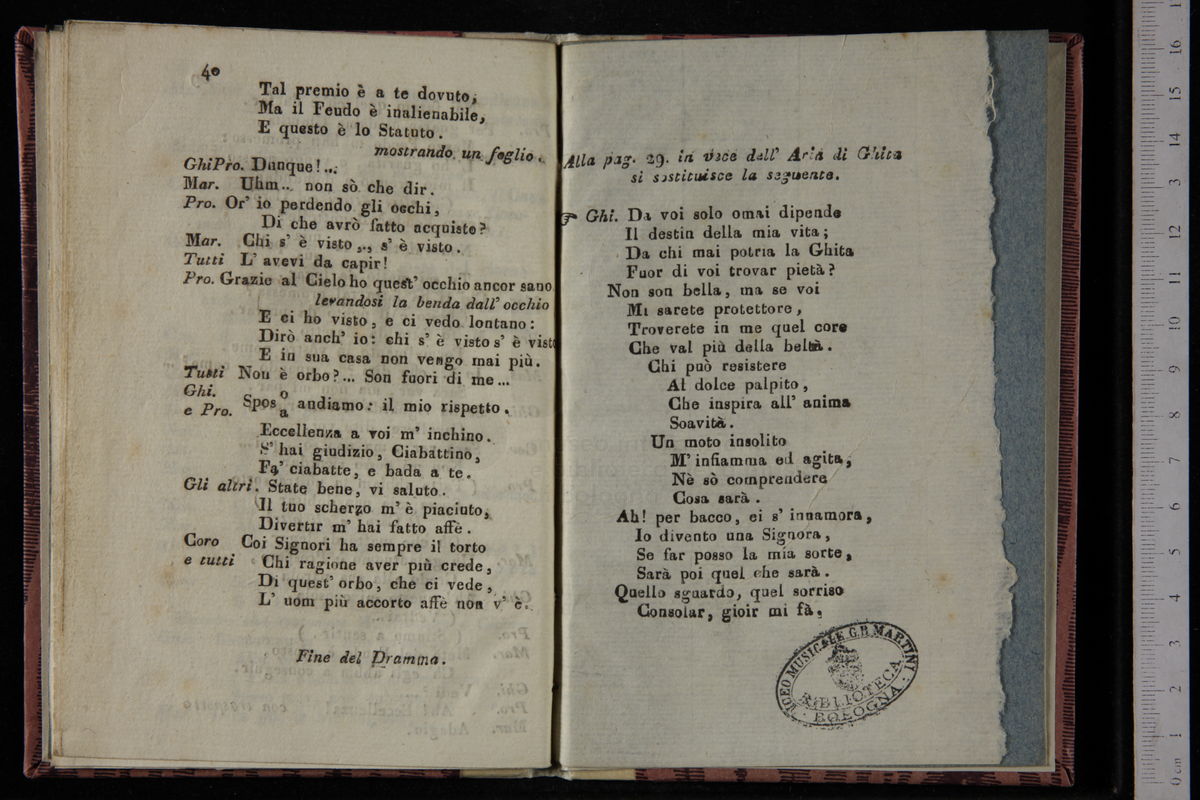 40
Tal premio è a te dovuto,
Ma il Feudo è inalienabile,
E questo è lo Statuto.
mostrando un foglio.
GhiPro. Dunque!...
Mar. Uhm... non sò che dir.
Pro. Or' io perdendo gli occhi,
Di che avrò fatto acquisto?
Mar. Chi s' è visto,., s' è visto.
Tutti L' avevi da capir!
Pro. Grazie al Cielo ho quest' occhio ancor sano
levandosi la benda dall' occhio
E ci ho visto, e ci vedo lontano:
Dirò anch' io: chi s' è visto s' è visto
E in sua casa non vengo mai più.
Tutti Non è orbo?... Son fuori di me...
Ghi.
e Pro. Spos o a andiamo: il mio rispetto.
Eccellenza a voi m' inchino.
S' hai giudizio, Ciabattino,
Fa' ciabatte, e bada a te.
Gli altri. State bene, vi saluto.
Il tuo scherzo m' è piaciuto,
Divertir m' hai fatto affè.
Coro Coi Signori ha sempre il torto
e tutti Chi ragione aver più crede,
Di quest' orbo, che ci vede,
L' uom più accorto affè non v' è.
Fine del Dramma.
Alla pag. 29. in vece dell' Aria di Ghita
si sostituisce la seguente.
☞ Ghi. Da voi solo omai dipende
Il destin della mia vita;
Da chi mai potria la Ghita
Fuor di voi trovar pietà?
Non son bella, ma se voi
Mi sarete protettore,
Troverete in me quel core
Che val più della beltà.
Chi può resistere
Al dolce palpito,
Che inspira all' anima
Soavità.
Un moto insolito
M' infiamma ed agita,
Nè sò comprendere
Cosa sarà.
Ah! per bacco, ei s' innamora,
Io divento una Signora,
Se far posso la mia sorte,
Sarà poi quel che sarà.
Quello sguardo, quel sorriso
Consolar, gioir mi fà.
LICEO MUSICALE G.B. MARTINI
BIBLIOTECA
BOLOGNA
0 cm 1 2 3 4 5 6 7 8 9 10 11 12 13 14 15 16